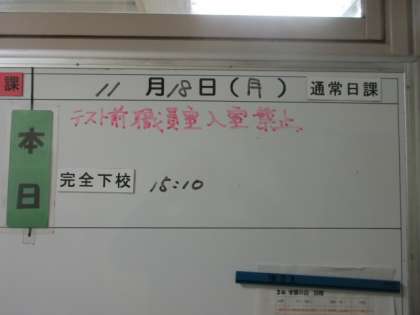 課 11月18日(月) 通常日課
テスト前職員室入室禁止
本日
完全下校 15:10